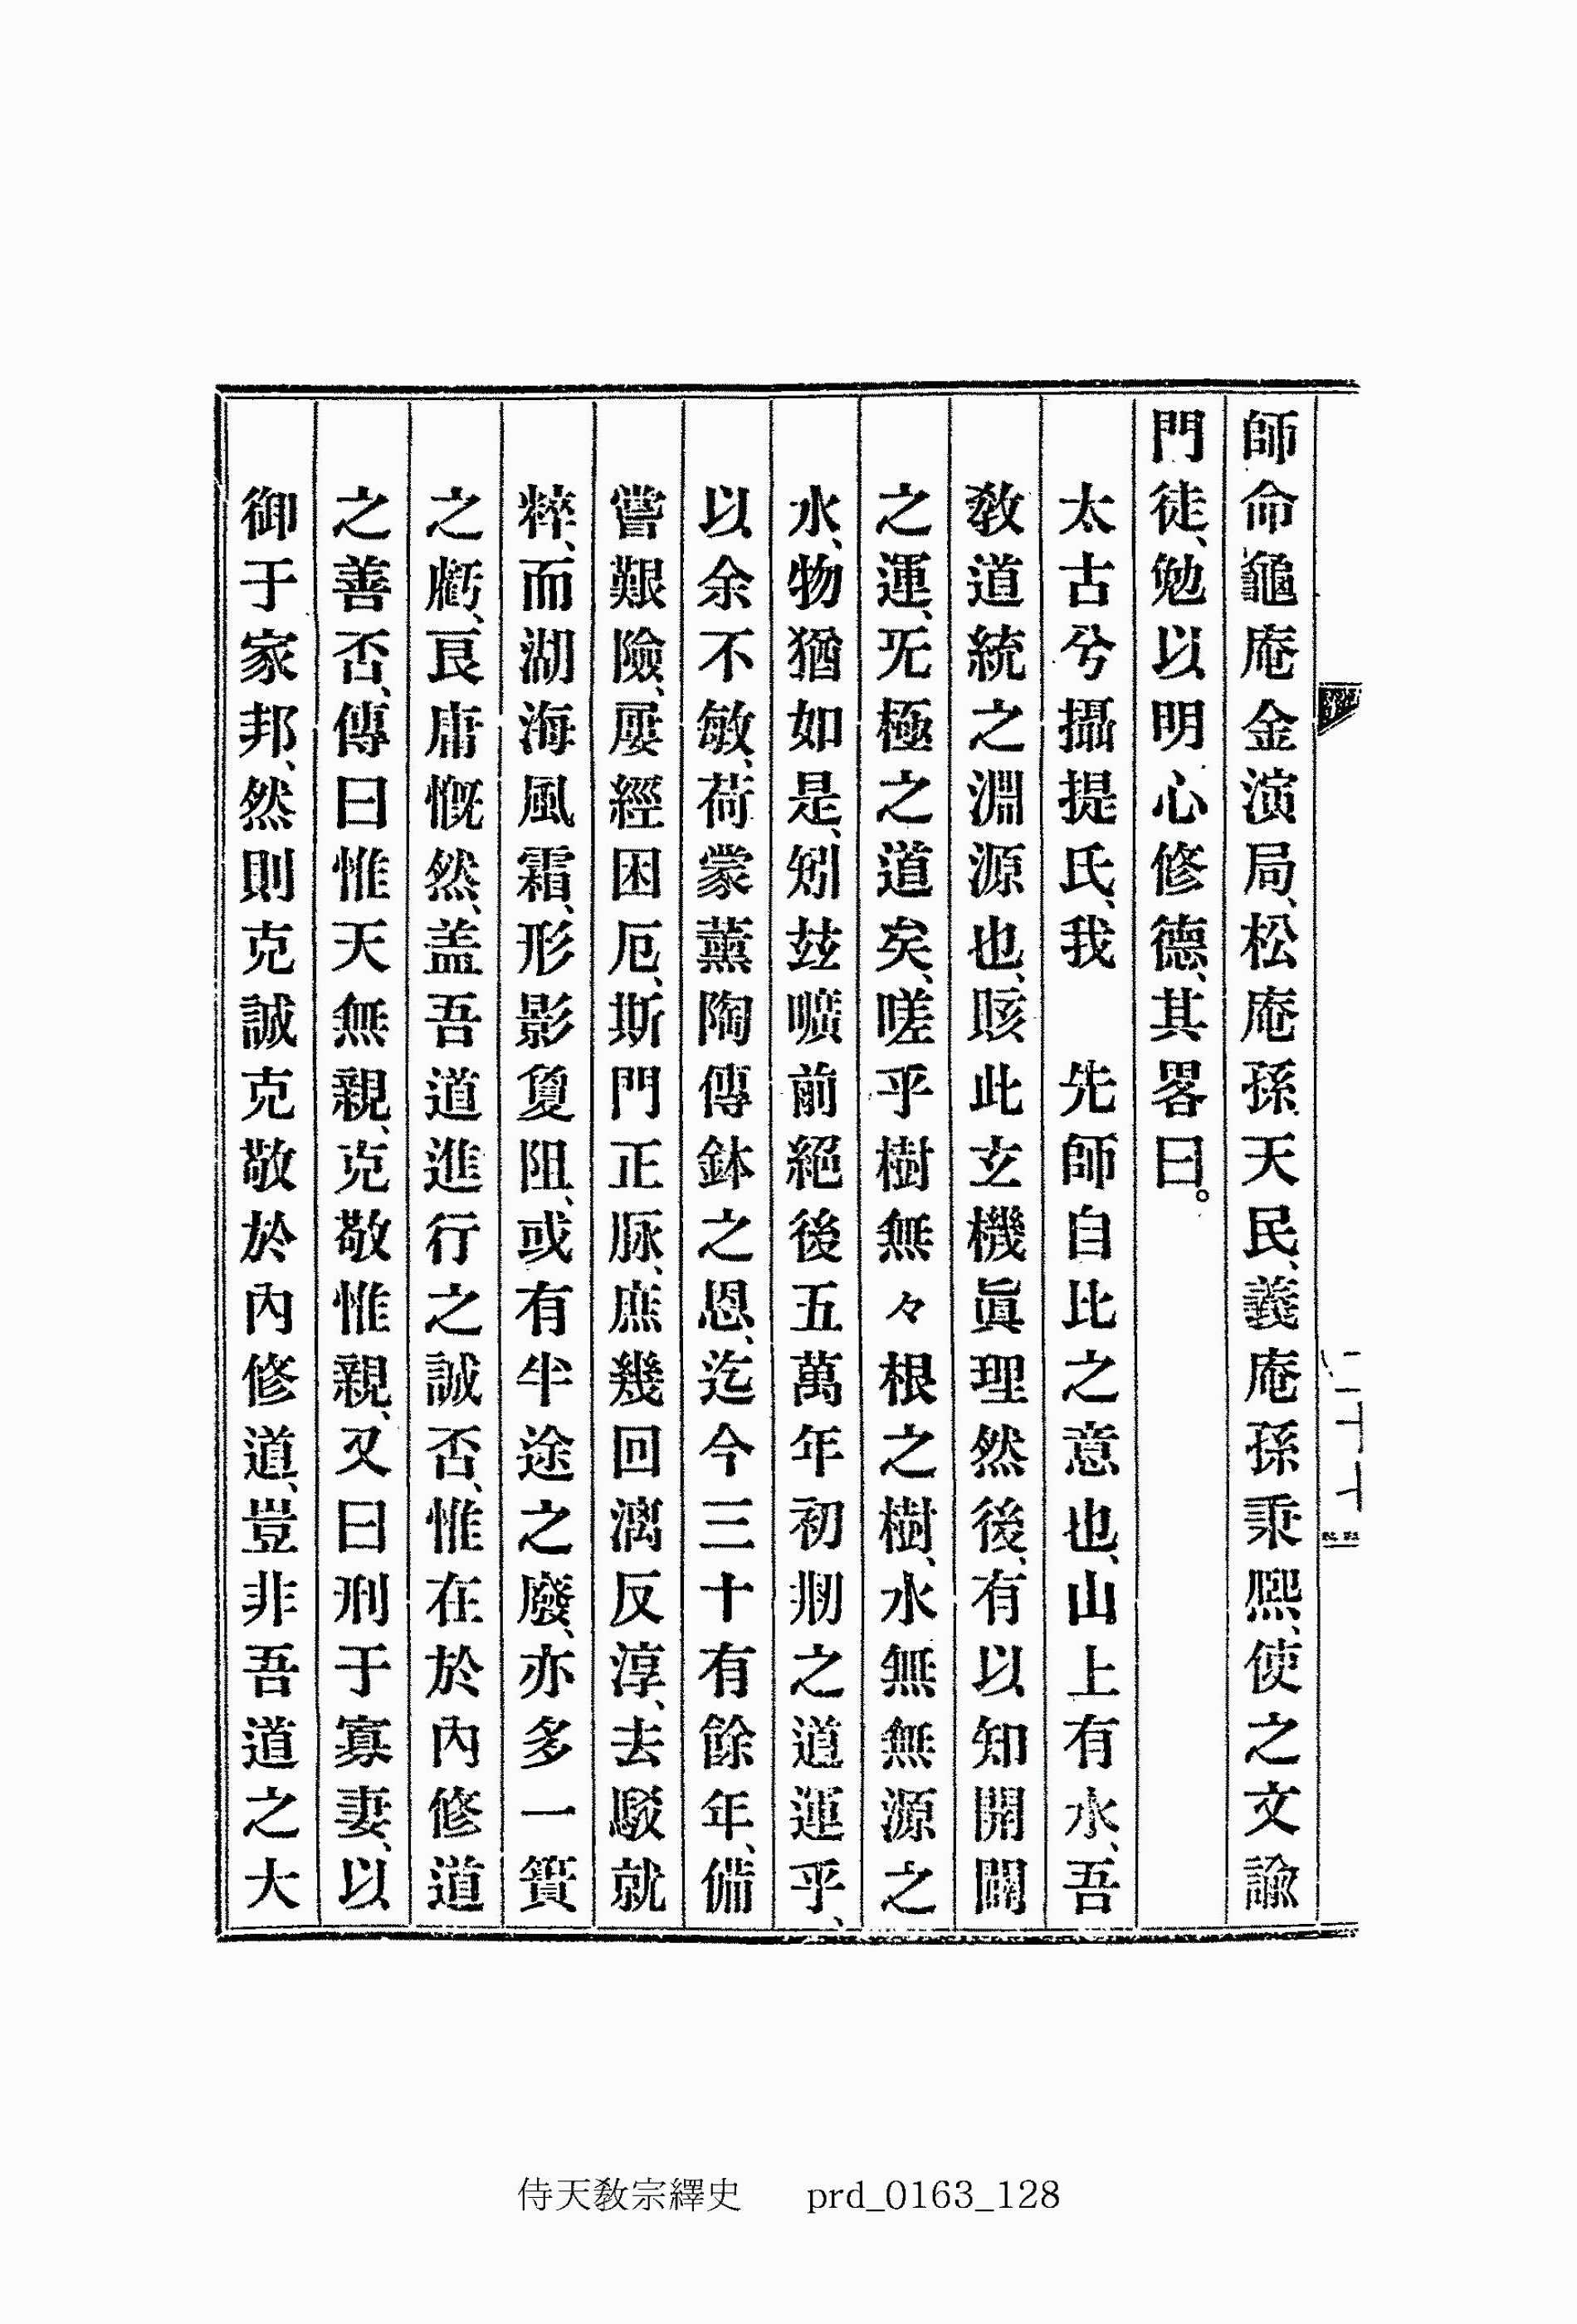 師命龜庵金演局、松庵孫天民、義庵孫秉熙、使之文諭
門徒、勉以明心修德、其畧曰。
太古兮攝提氏、我　先師自比之意也、山上有水、吾
敎道統之淵源也、晐此玄機眞理然後、有以知開闢
之運、旡極之道矣、嗟乎樹無々根之樹、水無無源之
水、物猶如是、矧玆曠前絕後五萬年初刱之道運乎、
以余不敏、荷蒙薰陶傳鉢之恩、迄今三十有餘年、備
嘗艱險、屢經困厄、斯門正脉、庶幾回漓反淳、去駁就
粹、而湖海風霜、形影夐阻、或有半途之廢、亦多一簣
之虧、良庸慨然、盖吾道進行之誠否、惟在於內修道
之善否、傳曰惟天無親、克敬惟親、又曰刑于寡妻、以
御于家邦、然則克誠克敬於內修道、豈非吾道之大
侍天敎宗繹史　prd_0163_128